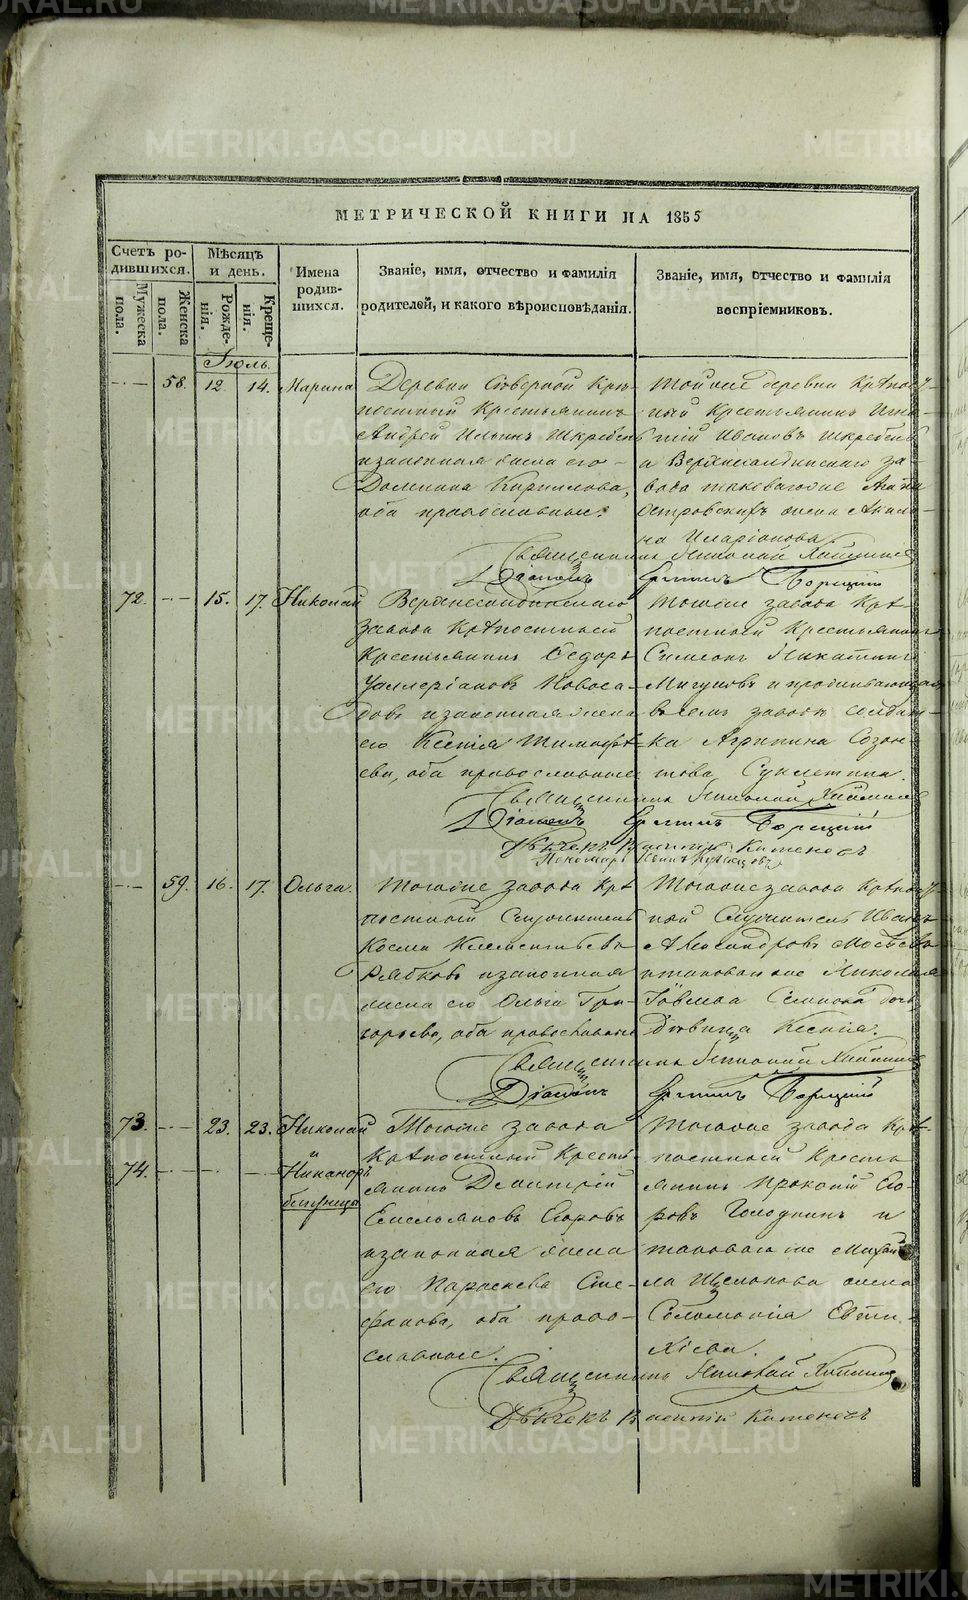 METRIKI.GASO-URAL.RU
МЕТРИЧЕСКОЙ КНИГИ НА 1855
Счетъ родившихся.
Мужеска пола.
Женска пола.
Мѣсяцъ и день.
Рожденія.
Крещенія.
Имена родившихся.
Званіе, имя, отчество и фамилія
родителей, и какого вѣроисповѣданія.
Званіе, имя, отчество и фамилія
воспріемниковъ.
Іюль.
58. 12. 14. Марина
Деревни Сѣверной Крѣ-
постный Крестьянинъ
Андрей Ильинъ
и законная жена его
Домника Кириллова,
оба православные.
Той же деревни Крѣпост-
ный Крестьянинъ Игна-
тій Ивановъ
и Верхнесалдинскаго за-
вода таковагоже
жена Акили-
на Иларіонова.
Священникъ Николай
Діаконъ Борецкій
72. 15. 17. Николай
Верхнесалдинскаго
завода Крѣпостный
Крестьянинъ Ѳедоръ
Уаллеріановъ Новоса-
довъ и законная жена
его Ксенія Тимофѣ-
ева, оба православные
Тогоже завода Крѣ-
постный Крестьянинъ
Симеонъ Никитинъ
Мигуновъ и проживающая
въ семъ заводѣ солдат-
ка Агрипина Созон-
това
Священникъ Николай
Діаконъ Борецкій
Дьячекъ
Пономарь
59. 16. 17. Ольга.
Тогоже завода Крѣ-
постный Служитель
Косма Климентьевъ
Рябковъ и законная
жена его Ольга Гри-
горьева, оба православные
Тогоже завода Крѣпост-
ной Служитель Иванъ
Александровъ
и таковагоже Николая
дочь
дѣвица Ксенія.
Священникъ Николай
Діаконъ Борецкій
73. 23. 23. Николай
и
74. Никаноръ
близнецы
Тогоже завода
Крѣпостный Кресть-
янинъ Димитрій
Емельяновъ Егоровъ
и законная жена
его Параскева Сте-
фанова, оба право-
славные.
Тогоже завода Крѣ-
постный Кресть-
янинъ Прокопій Его-
ровъ Голодкинъ и
таковаго же Михаи-
ла жена
Соломонія Евти-
хіева.
Священникъ Николай
Дьячекъ